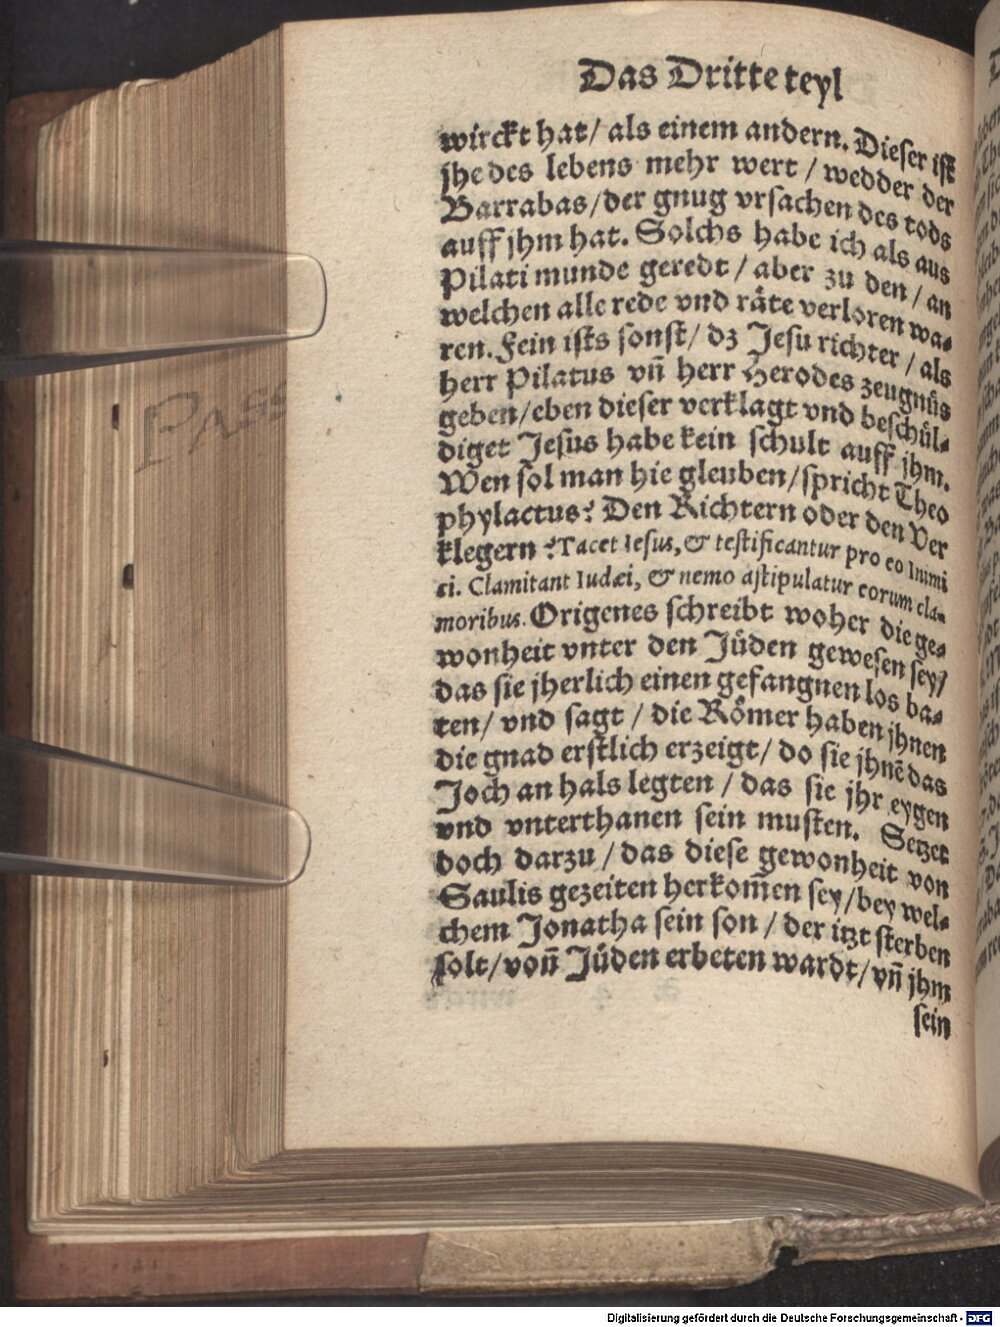 Das Dritte teyl
wirckt hat/ als einem andern. Dieser ist
jhe des lebens mehr wert / wedder der
Barrabas/der gnug vrsachen des tods
auff jhm hat. Solchs habe ich als aus
Pilati munde geredt / aber zu den / an
welchen alle rede vnd räte verloren wa-
ren. Fein ists sonst/ dz Jesu richter / als
herr Pilatus vñ herr Herodes zeugnüs
geben/eben dieser verklagt vnd beschül-
diget Jesus habe kein schult auff jhm.
Wen sol man hie gleuben/spricht Theo
phylactus? Den Richtern oder den Ver
klegern ? Tacet Iesus, & testificantur pro eo inimi
ci. Clamitant Iudæi, & nemo astipulatur eorum cla-
moribus. Origenes schreibt woher die ge-
wonheit vnter den Jüden gewesen sey/
das sie jherlich einen gefangnen los ba-
ten/ vnd sagt / die Römer haben jhnen
die gnad erstlich erzeigt/ do sie jhnē das
Joch an hals legten / das sie jhr eygen
vnd vnterthanen sein musten. Setzet
doch darzu / das diese gewonheit von
Saulis gezeiten herkom̄en sey/bey wel-
chem Jonatha sein son / der itzt sterben
solt/voñ Jüden erbeten wardt/vñ jhm
sein
PASS
Digitalisierung gefördert durch die Deutsche Forschungsgemeinschaft - DFG